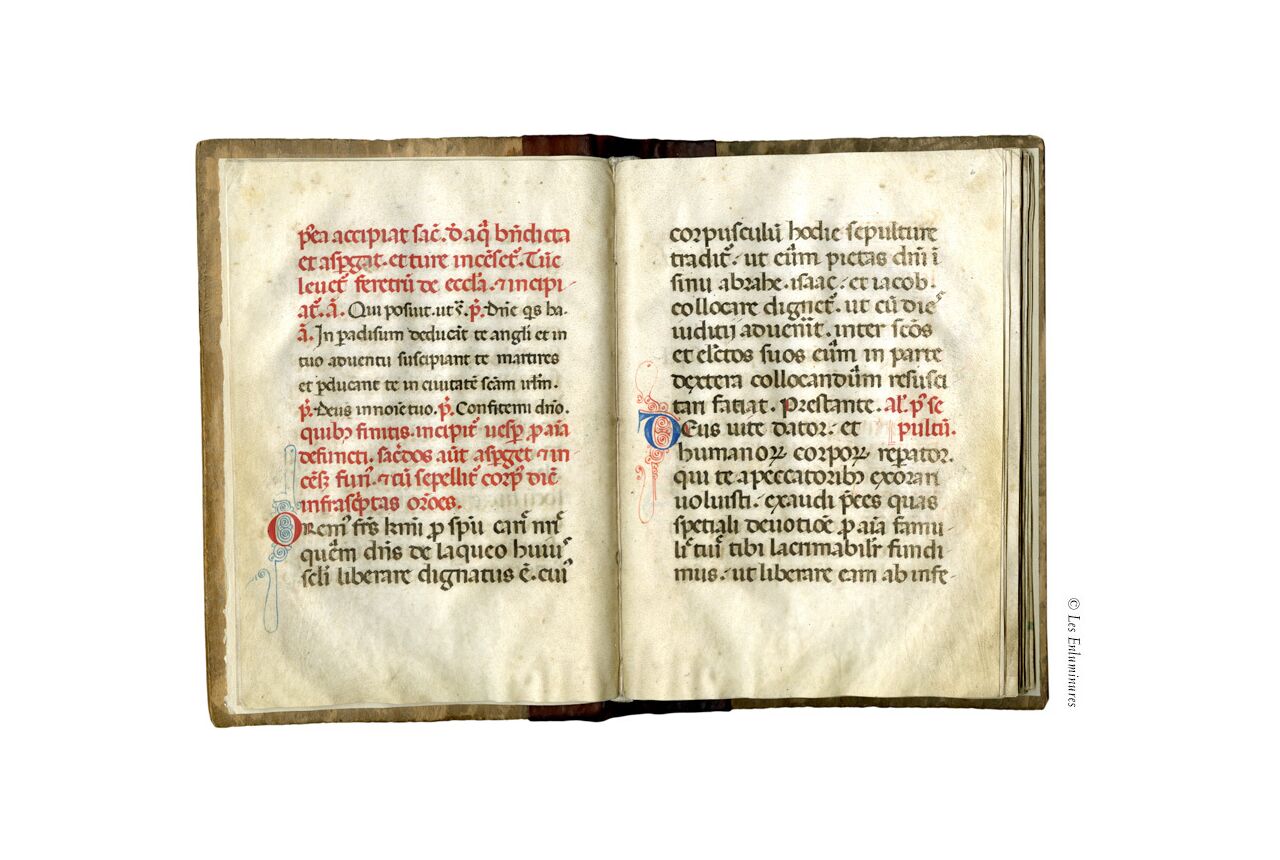 p̄ea accipiat sac̄. d̄ aq̄ bn̄dicta
et asꝑgat. et ture incēset᷑. Tūc
leuet᷑ feretrū de eccl̄a. ⁊ incipi-
at᷑. a᷑. Qui posuit. ut s᷑. p᷑. Dn̄e q̄s ba-
a᷑. In ꝑadisum deducāt te angli et in
tuo aduentu suscipiant te martires
et ꝑducant te in ciuitatē scām irl̄m.
p᷑. Deus in noīe tuo. p᷑. Confitemi dn̄o.
quibꝫ finitis. incipit᷑ uesꝑ ꝓ aīa
defuncti. sac̄dos aūt asꝑget ⁊ in-
cēs᷑ fun᷑. ⁊ cū sepellit᷑ corpꝰ dic̄
infrasc̄ptas or̄oēs.
Oremꝰ fr̄s km̄i ꝓ spū cari nr̄i
quem dn̄s de laqueo huiuꝰ
scl̄i liberare dignatus ē. cuiꝰ
corpusculū hodie sepulture
tradit᷑. ut eum pietas dn̄i ī
sinu abrahe. isaac. et iacob.
collocare dignet᷑. ut cū dieˢ
iuditij aduen̄it. inter sc̄os
et elc̄tos suos eum in parte
dextera collocandum resusci
tari faciat. Prestante. al᷑. p᷑ se
Deus uite dator. et pultū.
humanoꝝ corpoꝝ reꝑator.
qui te a peccatoribꝫ exorari
uoluisti. exaudi p̄ces quas
sp̄etiali deuotiōe ꝓ aīa famu-
liˢ tui᷑ tibi lacrimabilr̄ fundi
mus. ut liberare eam ab infe-
© Les Enluminures